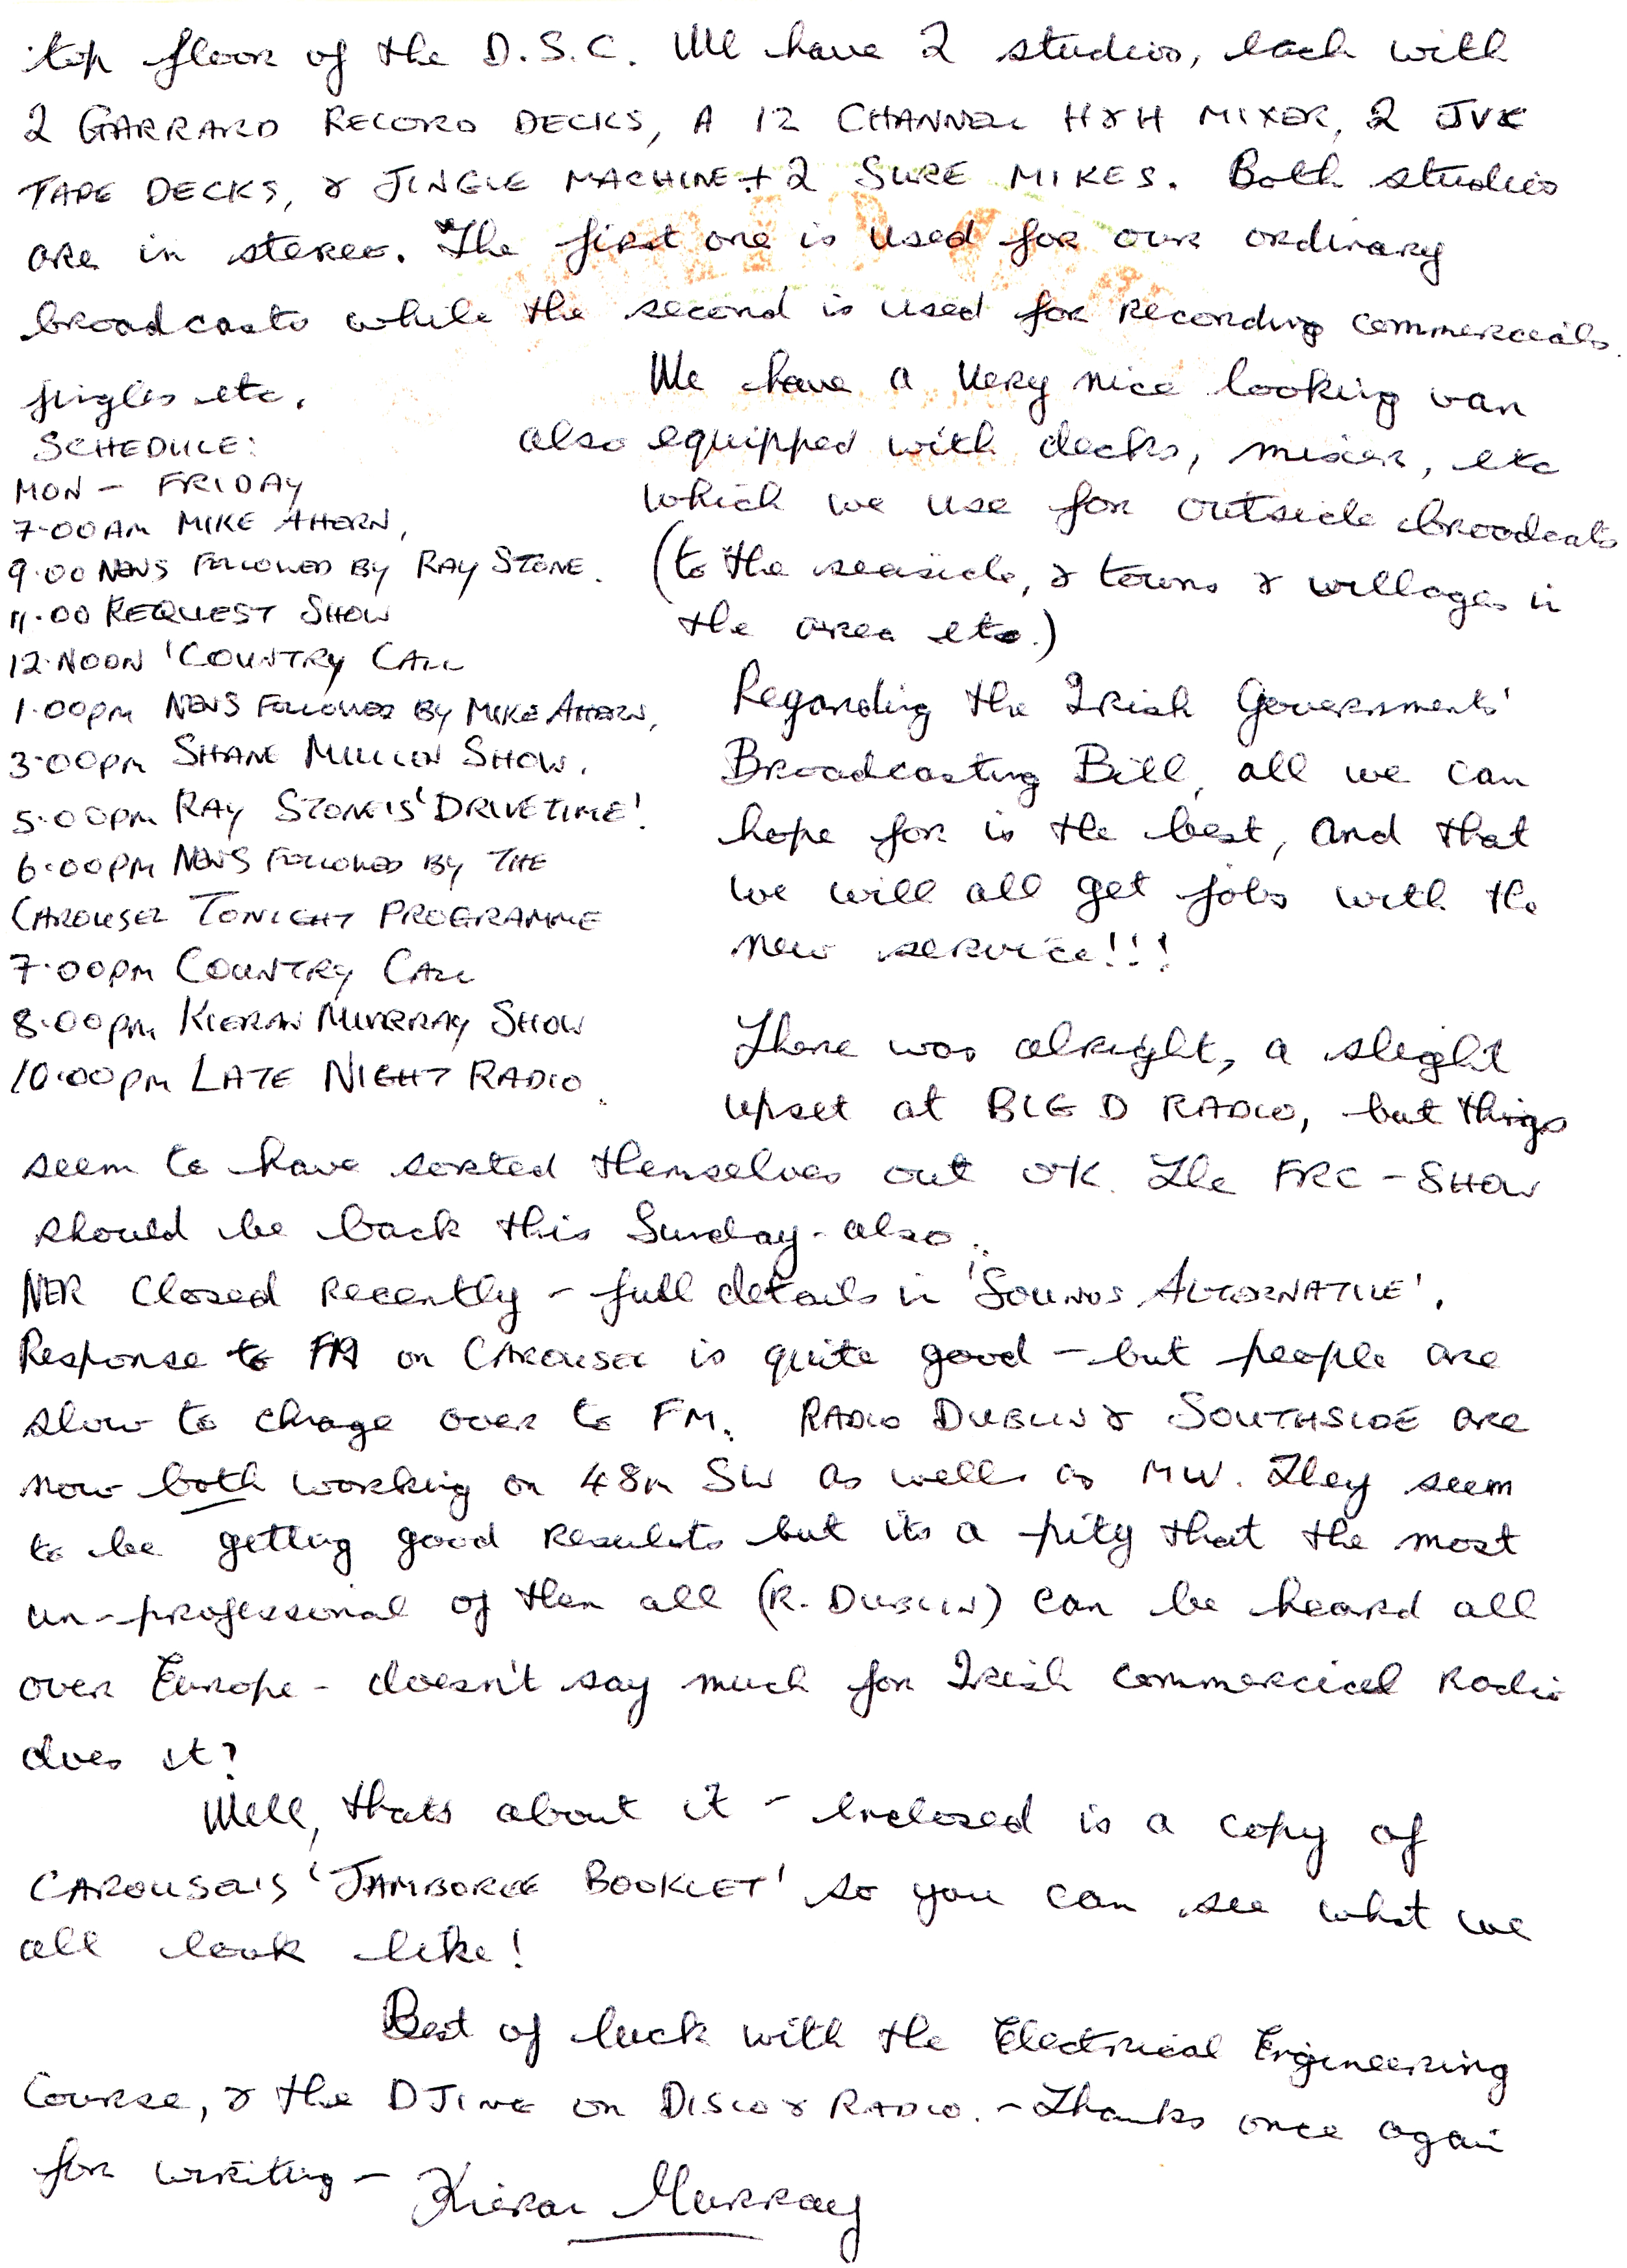 top floor of the D.S.C. We have 2 studios, each with
2 GARRARD RECORD DECKS, A 12 CHANNEL H&H MIXER, 2 JVC
TAPE DECKS, & JINGLE MACHINE + 2 SURE MIKES. Both studios
are in stereo. The first one is used for our ordinary
broadcasts while the second is used for recording commercials.
jingles etc.
SCHEDULE:
MON - FRIDAY
7.00AM MIKE AHERN,
9.00 NEWS FOLLOWED BY RAY STONE.
11.00 REQUEST SHOW
12.NOON 'COUNTRY CALL
1.00PM NEWS FOLLOWED BY MIKE AHERN,
3.00PM SHANE MULLEN SHOW.
5.00PM RAY STONE'S 'DRIVETIME'.
6.00PM NEWS FOLLOWED BY THE
CAROUSEL TONIGHT PROGRAMME
7.00PM COUNTRY CALL
8.00PM KIERAN MURRAY SHOW
10.00PM LATE NIGHT RADIO.
We have a very nice looking van
also equipped with decks, mixer, etc
which we use for outside broadcasts
(to the seaside, & towns & villages in
the area etc.)
Regarding the Irish Governments'
Broadcasting Bill, all we can
hope for is the best, and that
we will all get jobs with the
new service!!!
There was alright, a slight
upset at BIG D RADIO, but things
seem to have sorted themselves out OK. The FRC - SHOW
should be back this Sunday - also.
NER closed recently - full details in 'SOUNDS ALTERNATIVE'.
Response to FM on CAROUSEL is quite good - but people are
slow to change over to FM. RADIO DUBLIN & SOUTHSIDE are
now both working on 48m SW as well as MW. They seem
to be getting good results but its a pity that the most
un-professional of them all (R. DUBLIN) can be heard all
over Europe - doesn't say much for Irish commercial Radio
does it?
Well, thats about it - enclosed is a copy of
CAROUSEL'S 'JAMBOREE BOOKLET' so you can see what we
all look like!
Best of luck with the Electrical Engineering
Course, & the DJING on DISCO & RADIO. - Thanks once again
for writing - Kieran Murray